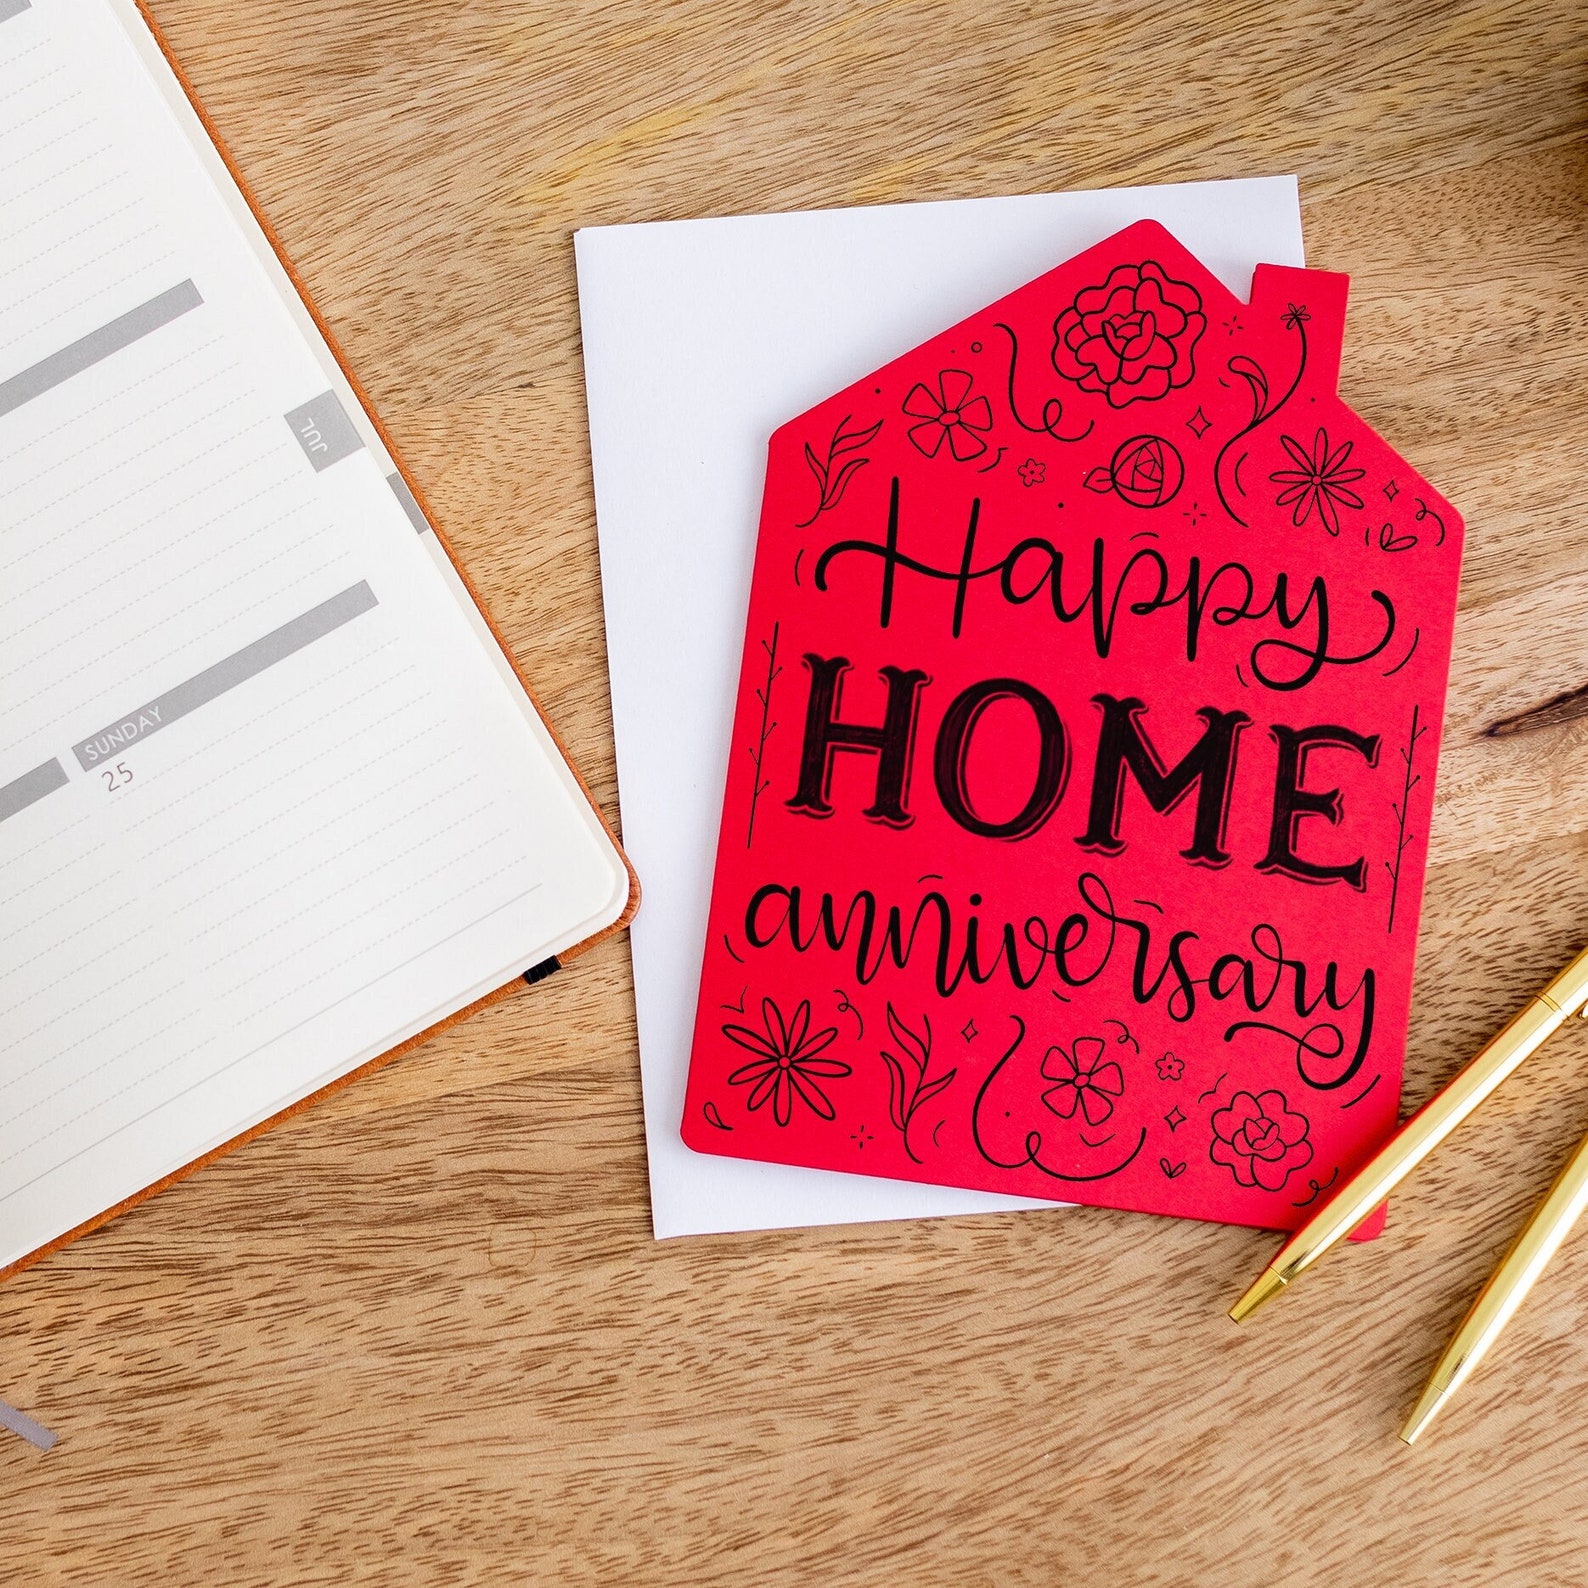 JUL
SUNDAY
25
Happy
HOME
anniversary